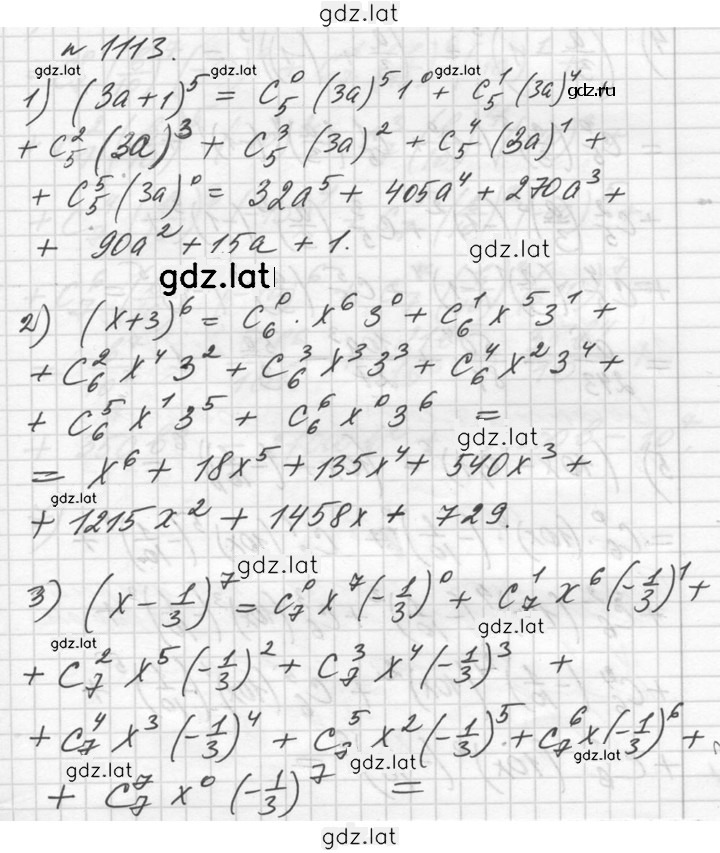 gdz.lat
n 1113.
gdz.lat gdz.lat gdz.lat
1) (3a+1)^5 = C_5^0 (3a)^5 1^0 + C_5^1 (3a)^4 +
gdz.ru
+ C_5^2 (3a)^3 + C_5^3 (3a)^2 + C_5^4 (3a)^1 +
+ C_5^5 (3a)^0 = 32a^5 + 405a^4 + 270a^3 +
+ 90a^2 + 15a + 1.
gdz.lat
gdz.lat
2) (x+3)^6 = C_6^0 · x^6 3^0 + C_6^1 x^5 3^1 +
+ C_6^2 x^4 3^2 + C_6^3 x^3 3^3 + C_6^4 x^2 3^4 +
+ C_6^5 x^1 3^5 + C_6^6 x^0 3^6 =
gdz.lat
= x^6 + 18x^5 + 135x^4 + 540x^3 +
gdz.lat
+ 1215x^2 + 1458x + 729.
gdz.lat
3) (x - 1/3)^7 = C_7^0 x^7 (-1/3)^0 + C_7^1 x^6 (-1/3)^1 +
gdz.lat gdz.lat
+ C_7^2 x^5 (-1/3)^2 + C_7^3 x^4 (-1/3)^3 +
+ C_7^4 x^3 (-1/3)^4 + C_7^5 x^2 (-1/3)^5 + C_7^6 x (-1/3)^6 +
gdz.lat gdz.lat
+ C_7^7 x^0 (-1/3)^7 =
gdz.lat